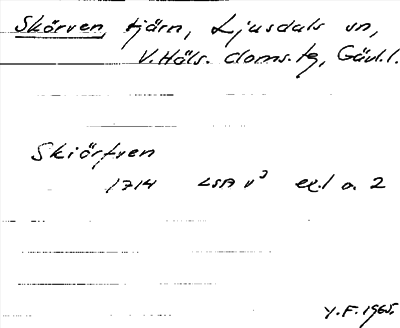 Skörven, tjärn, Ljusdals sn,
V. Häls. doms. tg, Gävl. l.
Skiörfven
1714 LSA v³ ex.1 a. 2
Y. F. 1965.